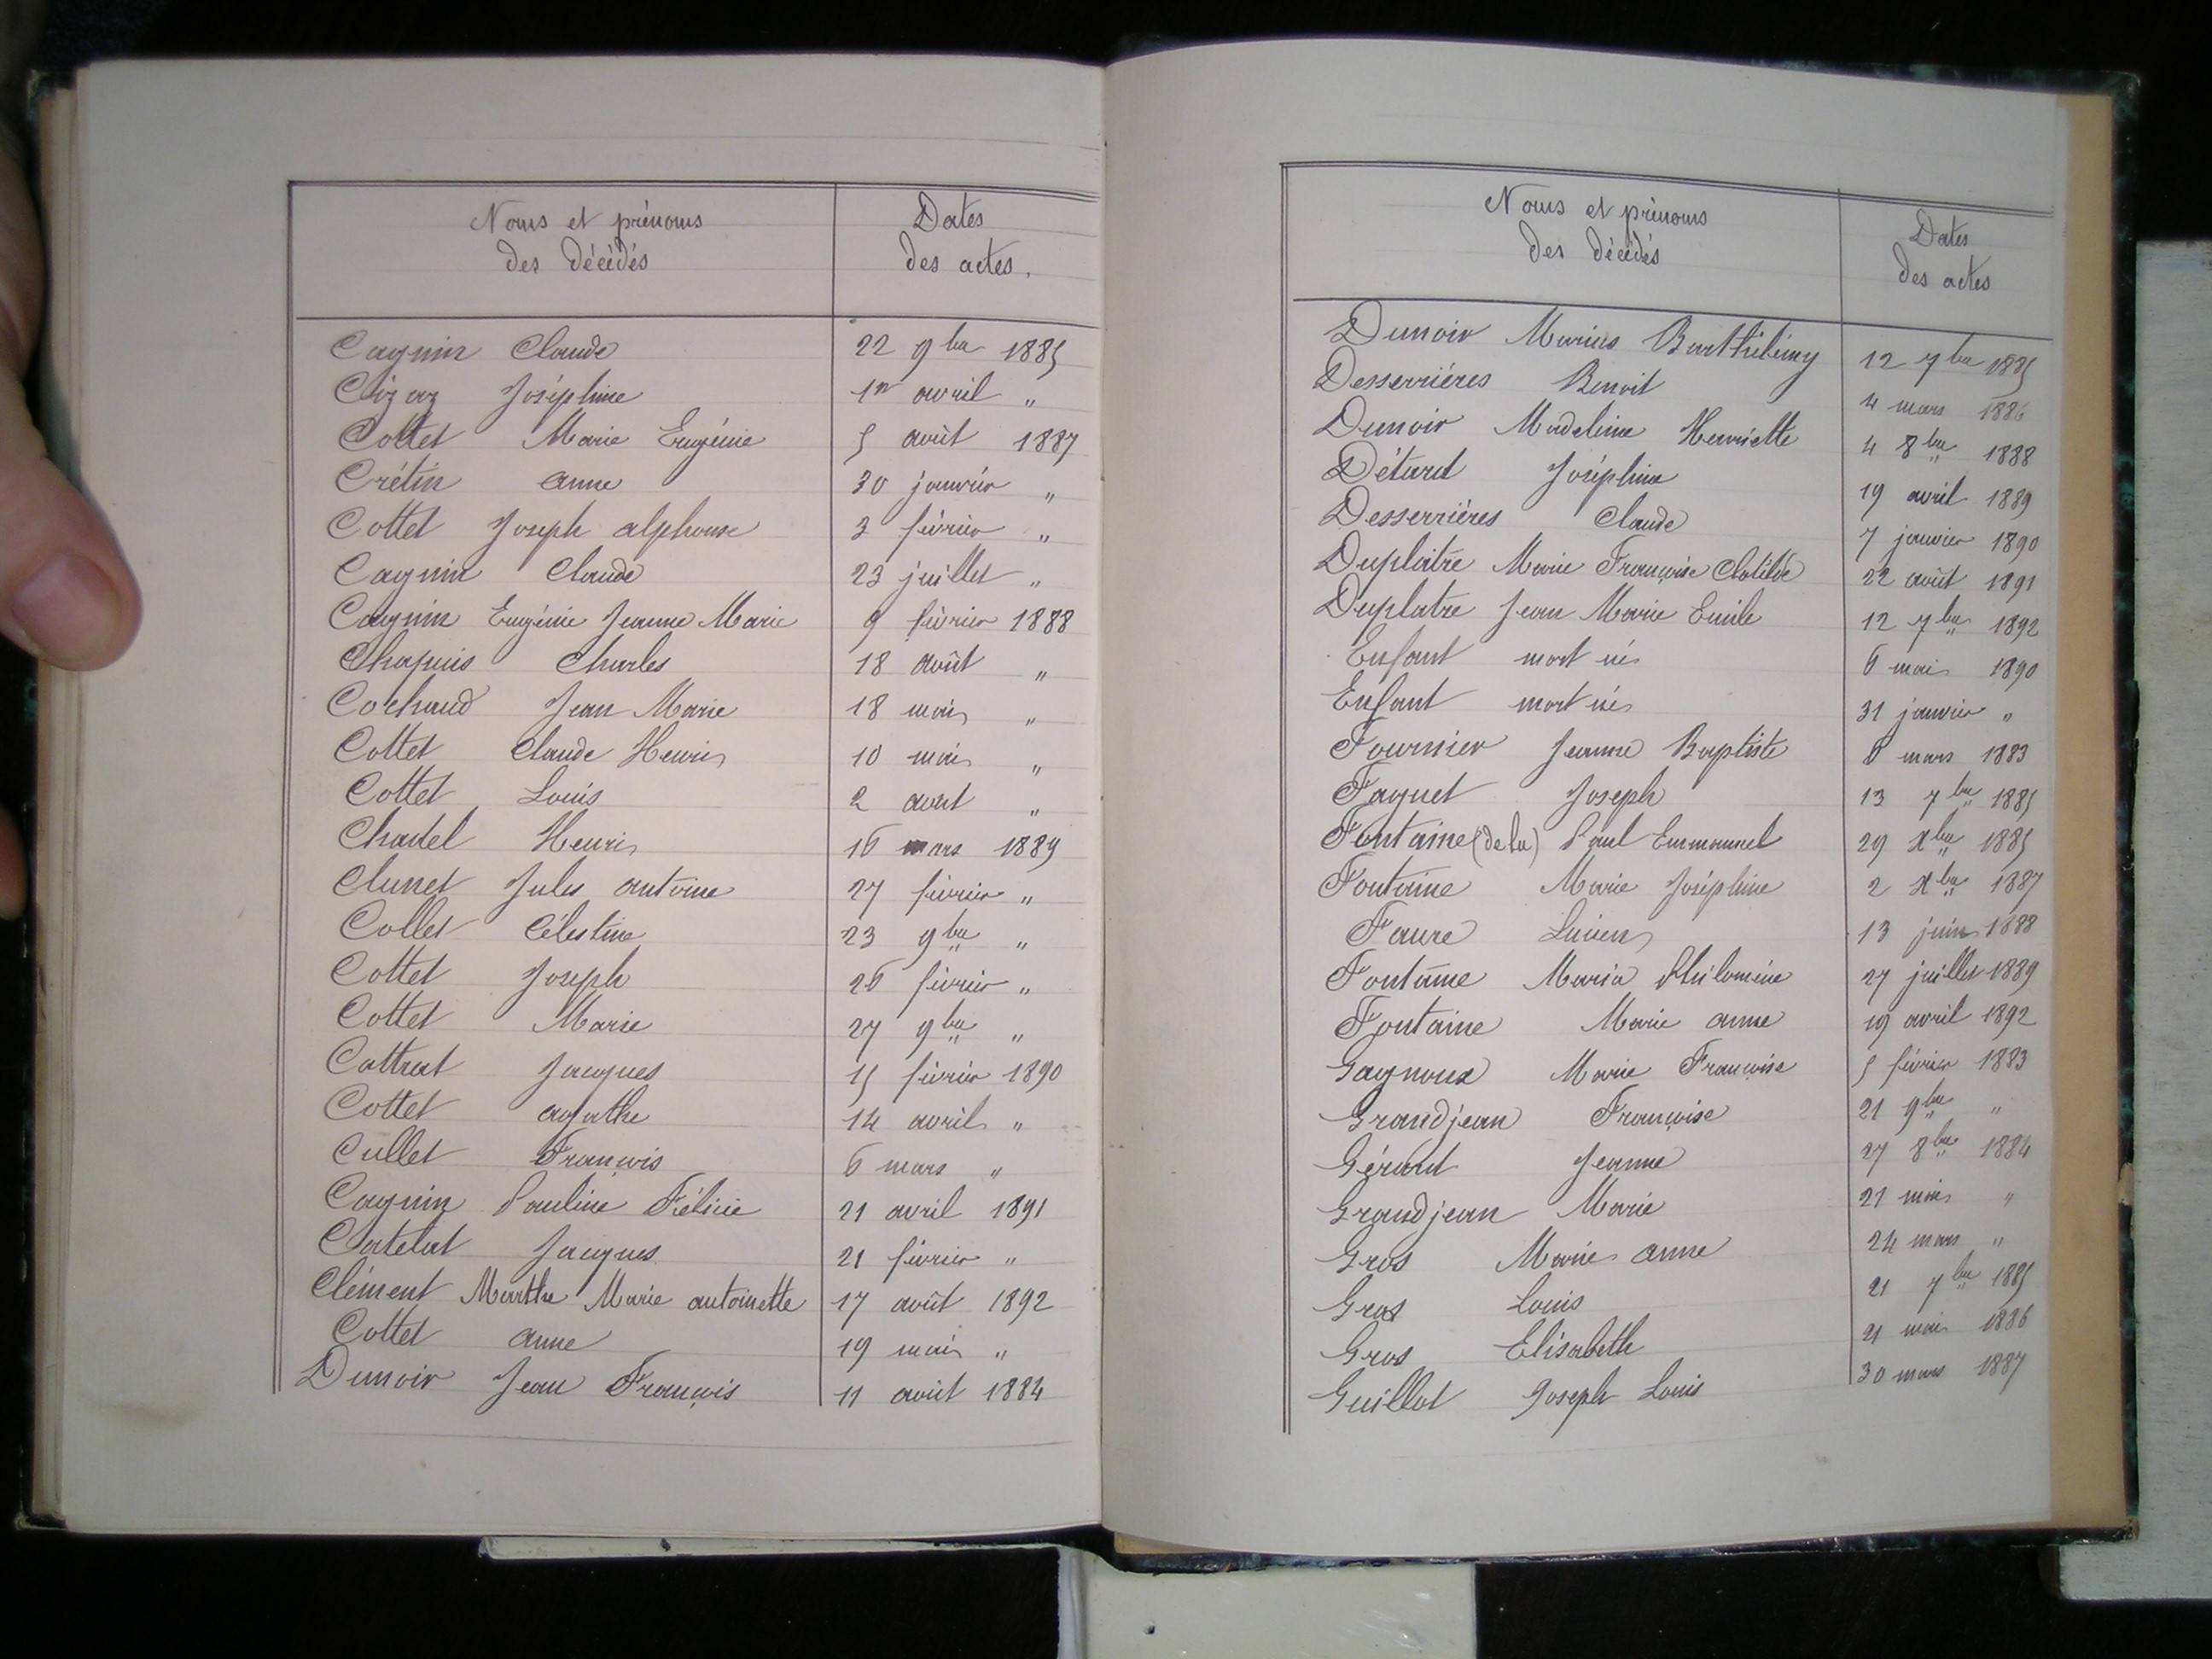 Noms et prénoms des décédés
Dates des actes.
Cagnin Claude 22 9bre 1885
Cizaz Joséphine 1er avril "
Cottet Marie Eugénie 5 août 1887
Crétin anne 30 janvier "
Cottet Joseph alphonse 3 février "
Cagnin Claude 23 juillet "
Cagnin Eugénie Jeanne Marie 9 février 1888
Chapuis Charles 18 août "
Cochaud Jean Marie 18 mai "
Cottet Claude Henri 10 mai "
Cottet Louis 2 août "
Chatel Henri 16 mars 1889
Clunet Jules antoine 27 février "
Collet Célestine 23 9bre "
Cottet Joseph 26 février "
Cottet Marie 27 9bre "
Jacques 15 février 1890
Cottet agathe 14 avril "
Cullet François 6 mars "
Cagnin Pauline Félicie 21 avril 1891
Catelat Jacques 21 février "
Clément Marthe Marie antoinette 17 août 1892
Cottet anne 19 mai "
Dunoir Jean François 11 août 1884
Noms et prénoms des décédés
Dates des actes
Dunoir Marius Barthélémy 12 7bre 1885
Desserrières Benoit 4 mars 1886
Dunoir Madeleine Henriette 4 8bre 1888
Détard Joséphine 19 avril 1889
Desserrières Claude 7 janvier 1890
Duplâtre Marie Françoise Clotilde 22 août 1891
Duplatre Jean Marie Emile 12 7bre 1892
Enfant mort né 6 mai 1890
Enfant mort né 31 janvier "
Fournier Jeanne Baptiste 8 mars 1883
Faguet Joseph 13 7bre 1885
Fontaine (de la) Paul Emmanuel 29 Xbre 1885
Fontaine Marie Joséphine 2 Xbre 1887
Faure Lucien 13 juin 1888
Fontaine Maria Philomène 27 juillet 1889
Fontaine Marie anne 19 avril 1892
Gagnoux Marie Françoise 5 février 1883
Grandjean Françoise 21 9bre "
Gérard Jeanne 27 8bre 1884
Grandjean Marie 21 mai "
Gros Marie anne 24 mars "
Gros Louis 21 7bre 1885
Gros Elisabeth 21 mai 1886
Guillot Joseph Louis 30 mars 1887